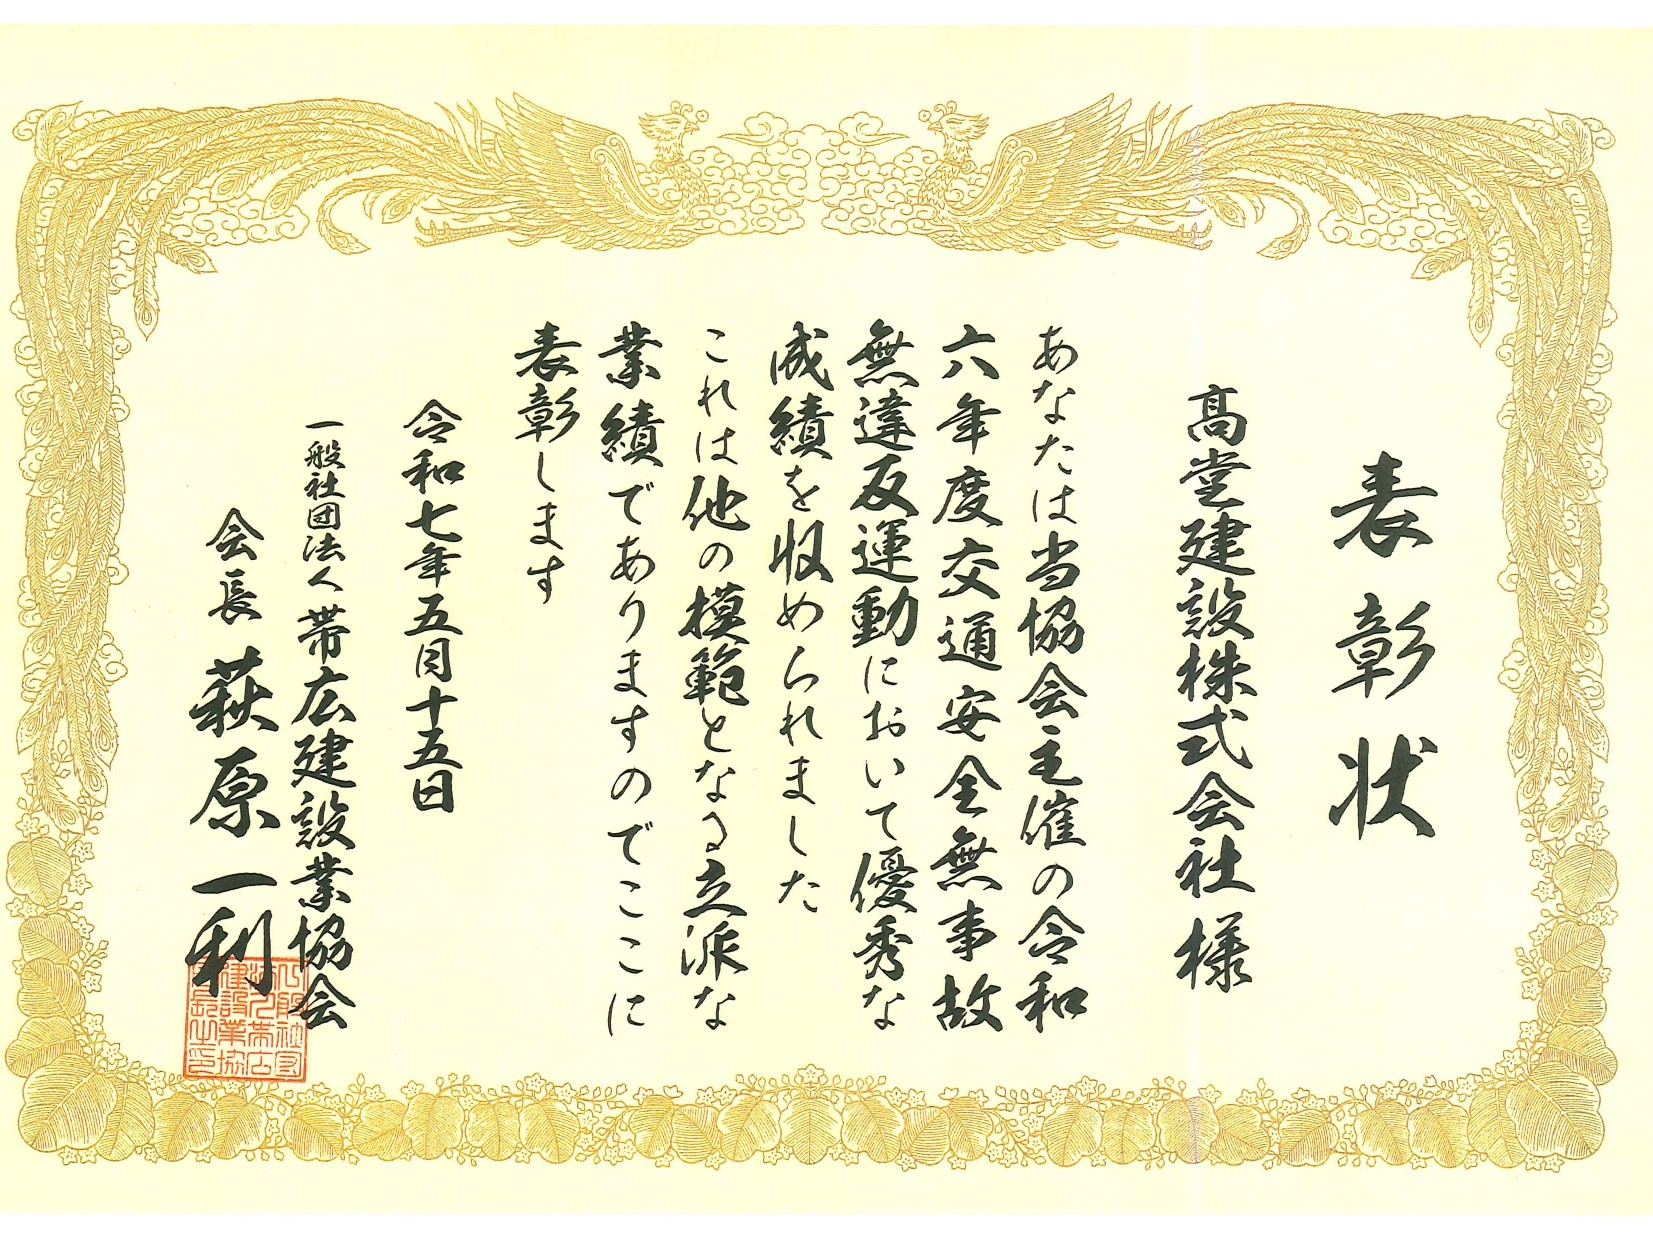 表彰状
髙堂建設株式会社 様
あなたは当協会主催の令和
六年度交通安全無事故
無違反運動において優秀な
成績を収められました
これは他の模範となる立派な
業績でありますのでここに
表彰します
令和七年五月十五日
一般社団法人 帯広建設業協会
会長 萩原一利